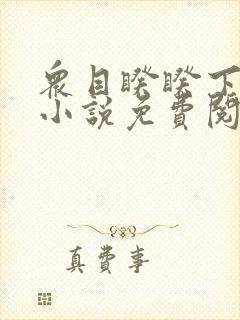 衆目睽睽下
小說免費閱
真費事